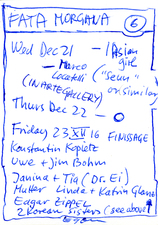 FATA MORGANA 6
Wed Dec 21 - 1 Asian girl
- Marco Locatelli ("Seun" or similar)
(IN ARTE GALLERY)
Thurs Dec 22 -
Friday 23 XII 16 FINISSAGE
Konstantin Kaplete
Uwe + Jim Böhm
Janina + Tia (Dr. Ei)
Mutter Linde + Katrin
Edgar Zippel
2 Korean sisters (see above)